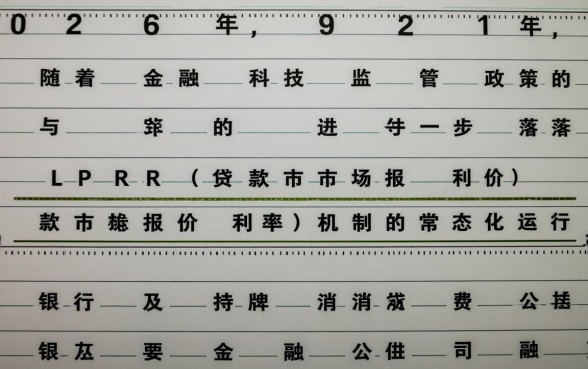 026年, 921年,
随着金融科技监管政策的
与的进一步落落
LPRR（贷款市市场报利价）
款市报价利率）机制的常态化运行
银行及持牌消消费公
银要金融公司融